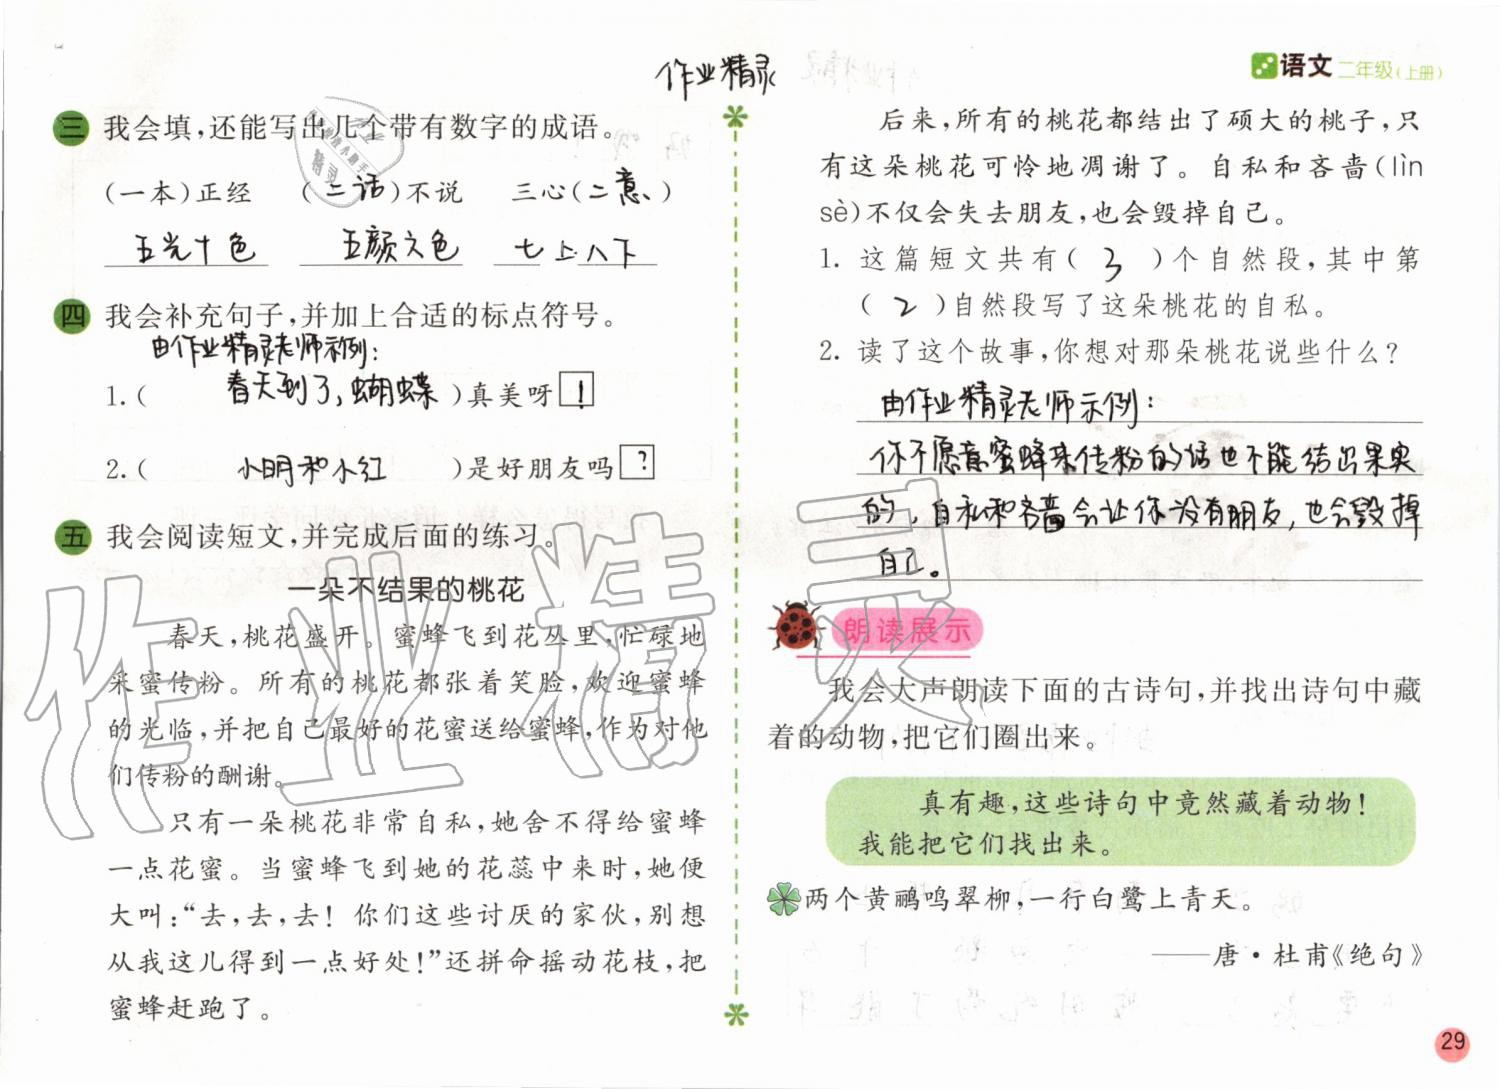 作业精灵
语文 二年级(上册)
三 我会填,还能写出几个带有数字的成语。
(一本)正经 (二话)不说 三心(二意)
五光十色 五颜六色 七上八下
四 我会补充句子,并加上合适的标点符号。
由作业精灵老师示例:
1.( 春天到了,蝴蝶 )真美呀 !
2.( 小明和小红 )是好朋友吗 ?
五 我会阅读短文,并完成后面的练习。
一朵不结果的桃花
春天,桃花盛开。蜜蜂飞到花丛里,忙碌地
采蜜传粉。所有的桃花都张着笑脸,欢迎蜜蜂
的光临,并把自己最好的花蜜送给蜜蜂,作为对他
们传粉的酬谢。
只有一朵桃花非常自私,她舍不得给蜜蜂
一点花蜜。当蜜蜂飞到她的花蕊中来时,她便
大叫:“去,去,去!你们这些讨厌的家伙,别想
从我这儿得到一点好处!”还拼命摇动花枝,把
蜜蜂赶跑了。
后来,所有的桃花都结出了硕大的桃子,只
有这朵桃花可怜地凋谢了。自私和吝啬(lìn
sè)不仅会失去朋友,也会毁掉自己。
1. 这篇短文共有( 3 )个自然段,其中第
( 2 )自然段写了这朵桃花的自私。
2. 读了这个故事,你想对那朵桃花说些什么?
由作业精灵老师示例:
你不愿意蜜蜂来传粉的话也不能结出果实
的,自私和吝啬会让你没有朋友,也会毁掉
自己。
朗读展示
我会大声朗读下面的古诗句,并找出诗句中藏
着的动物,把它们圈出来。
真有趣,这些诗句中竟然藏着动物!
我能把它们找出来。
两个黄鹂鸣翠柳,一行白鹭上青天。
——唐·杜甫《绝句》
29
作业精灵